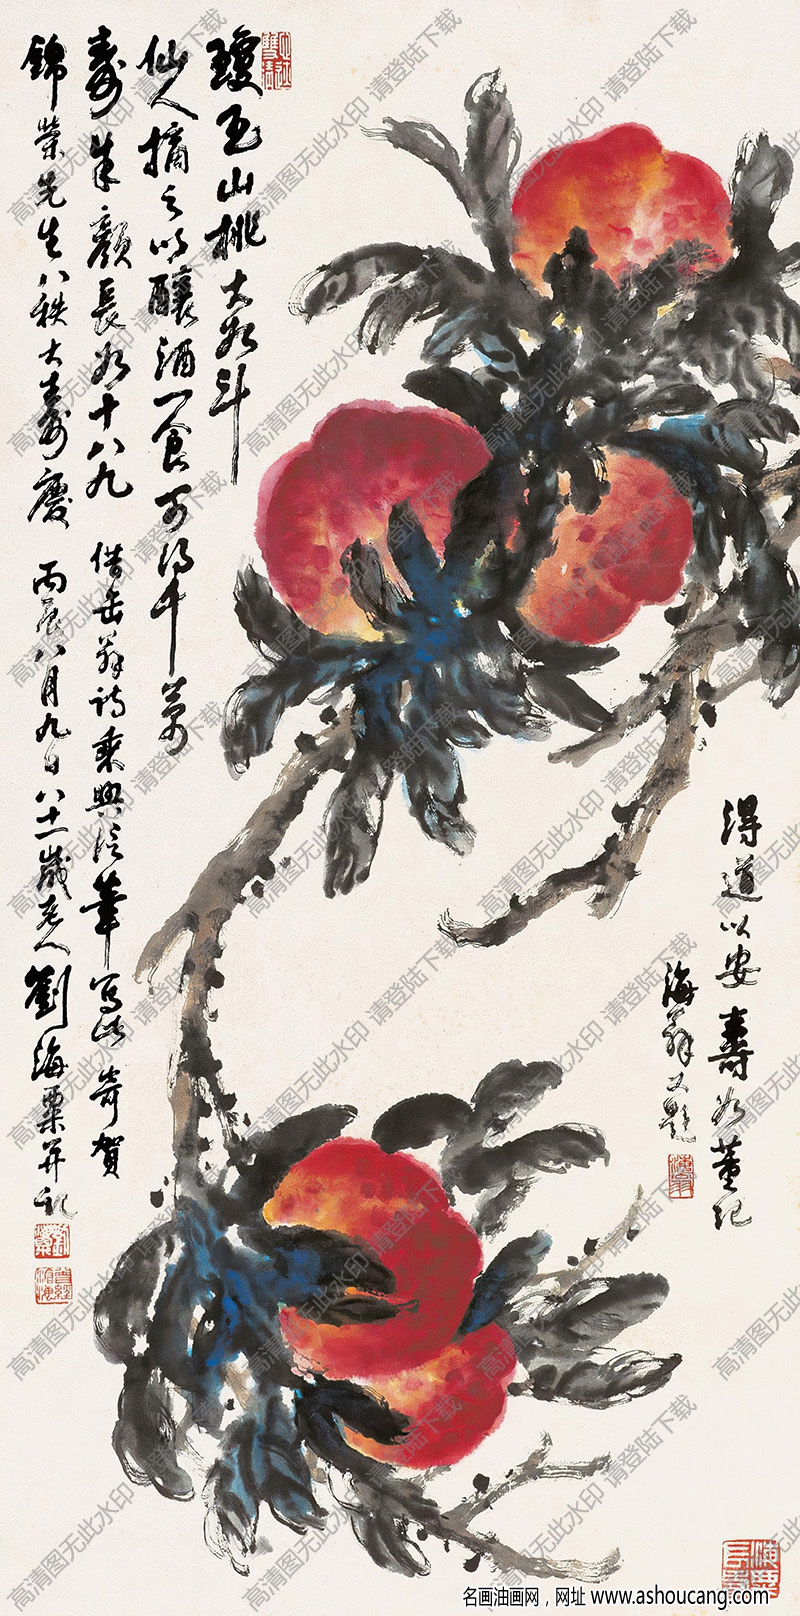 琼玉山桃大如斗
仙人摘之以酿酒一食可得千万
寿朱颜长如十八九 借缶翁诗乘兴信笔写此奇贺
錦荣先生八秩大寿慶 丙辰八月九日八十一歲老人劉海粟并記
得道以安寿如董記
海翁又题
高清图无此水印 请登陆下载
名画油画网，网址 www.ashoucang.com